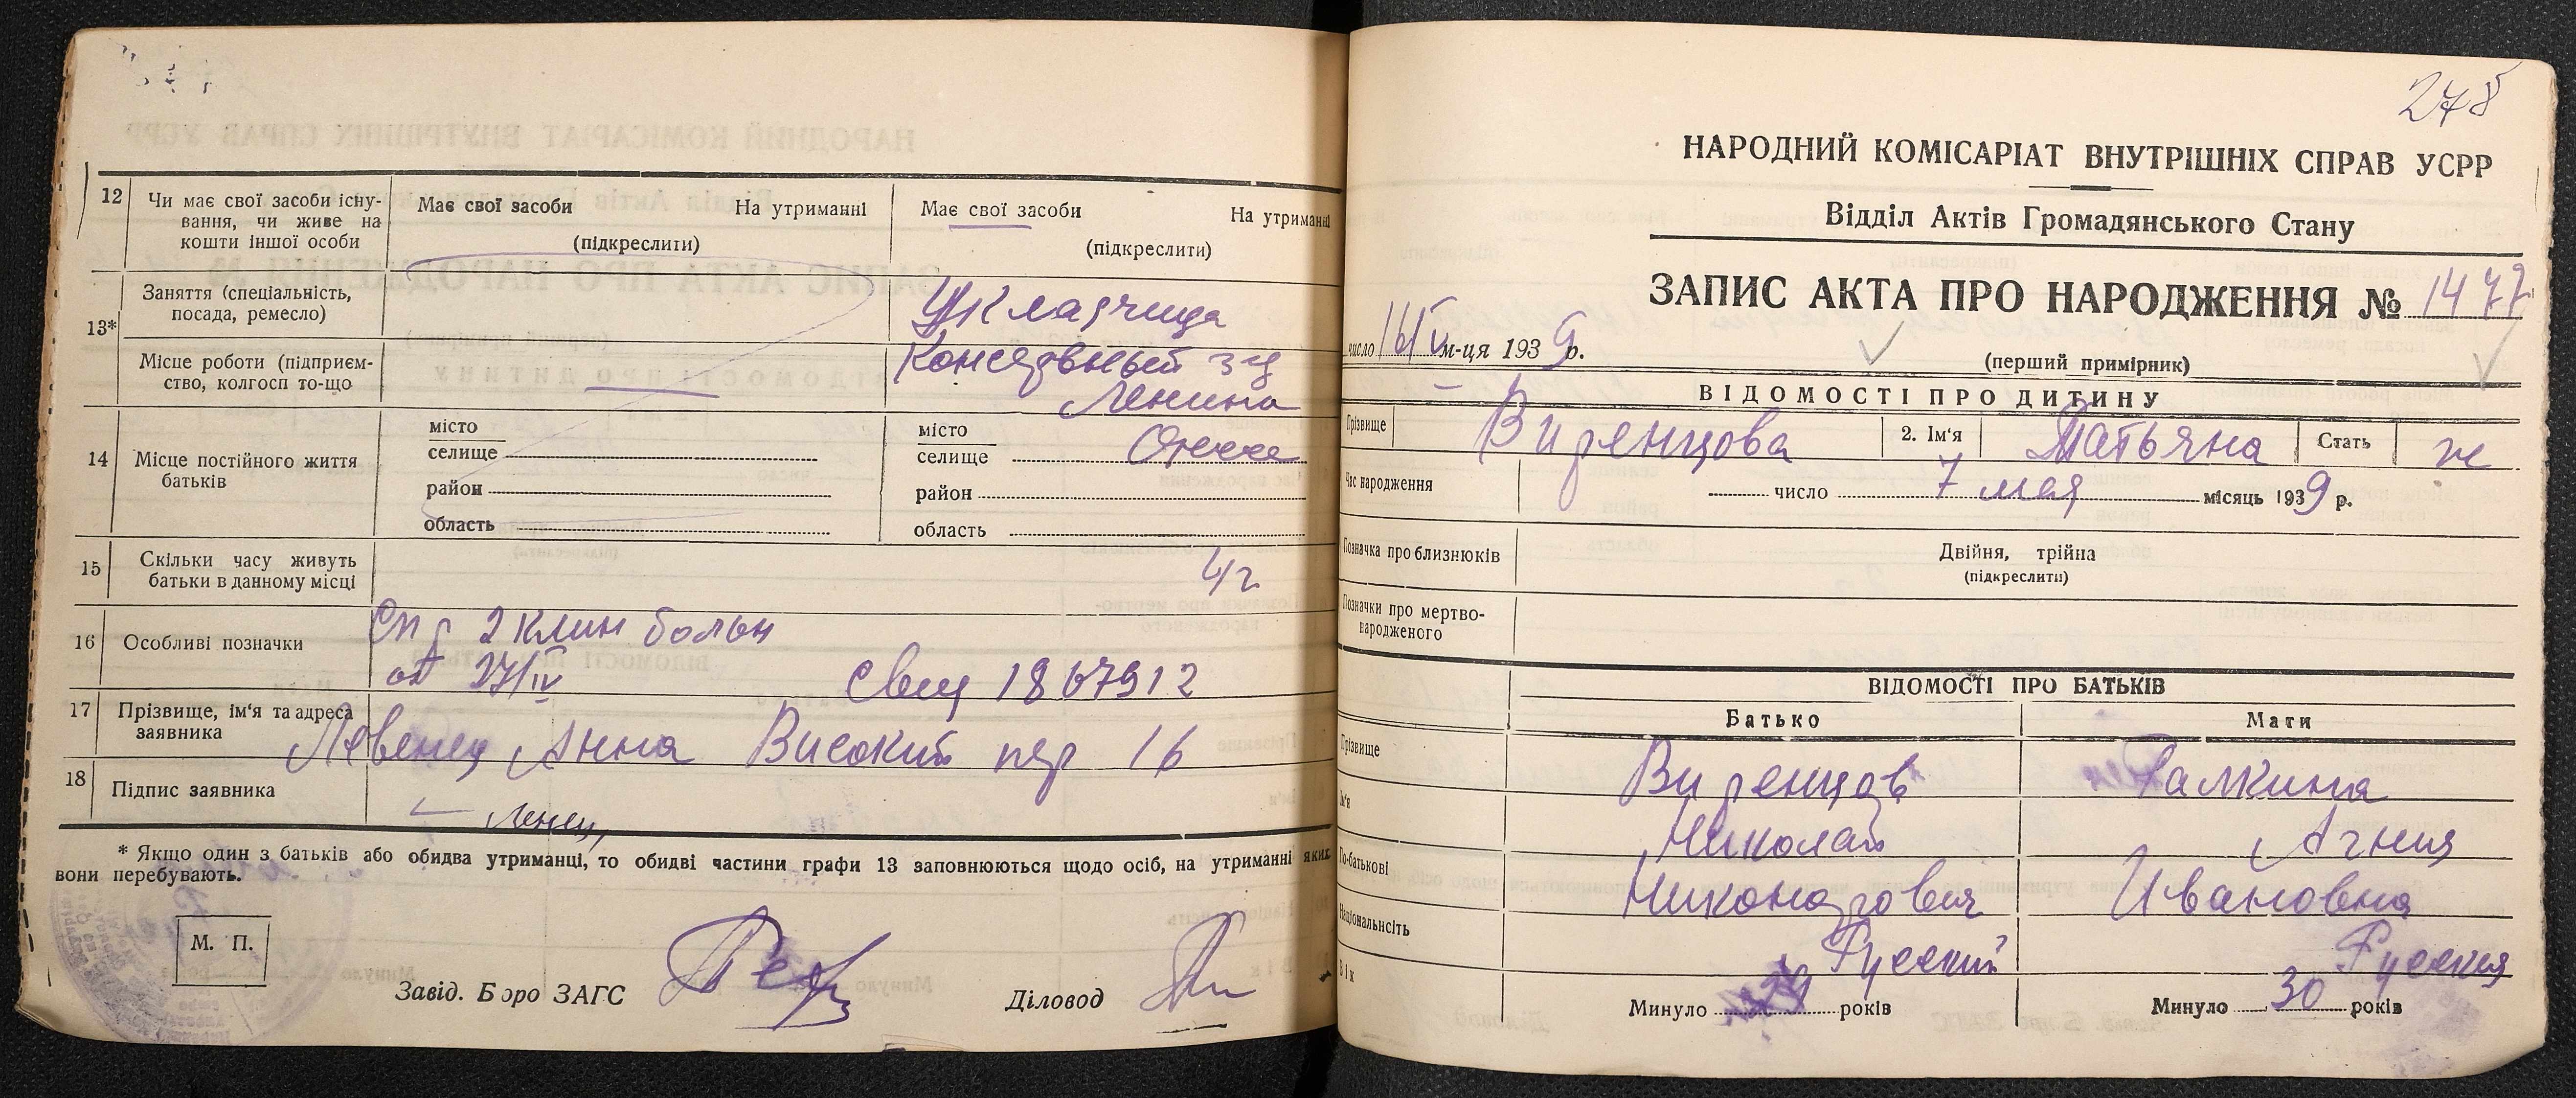 12 Чи має свої засоби існу-
вання, чи живе на
кошти іншої особи
Має свої засоби На утриманні
(підкреслити)
Має свої засоби На утриманні
(підкреслити)
13*
Заняття (спеціальність,
посада, ремесло)
Укладчица
Місце роботи (підприєм-
ство, колгосп то-що
Консервный з-д
Ленина
14 Місце постійного життя
батьків
місто
селище
район
область
місто
селище Одесса
район
область
15 Скільки часу живуть
батьки в данному місці
4 г
16 Особливі позначки
Спр 2 клин больн
от 27/IV Свид 1867912
17 Прізвище, ім'я та адреса
заявника
Левенец Анна Високий пер 16
18 Підпис заявника
* Якщо один з батьків або обидва утриманці, то обидві частини графи 13 заповнюються щодо осіб, на утриманні яких
вони перебувають.
М. П.
Завід. Бюро ЗАГС
Діловод
278
НАРОДНИЙ КОМІСАРІАТ ВНУТРІШНІХ СПРАВ УСРР
Відділ Актів Громадянського Стану
ЗАПИС АКТА ПРО НАРОДЖЕННЯ № 1477
число 16/V м-ця 1939 р.
(перший примірник)
ВІДОМОСТІ ПРО ДИТИНУ
Прізвище Виренцова 2. Ім'я Татьяна Стать ж
Час народження число 7 мая місяць 1939 р.
Позначка про близнюків
Двійня, трійна
(підкреслити)
Позначки про мертво-
народженого
ВІДОМОСТІ ПРО БАТЬКІВ
Батько Мати
Прізвище Виренцов Галкина
Ім'я Николай Агния
По-батькові Никонорович Ивановна
Національність Русский Русская
Вік Минуло 29 років Минуло 30 років